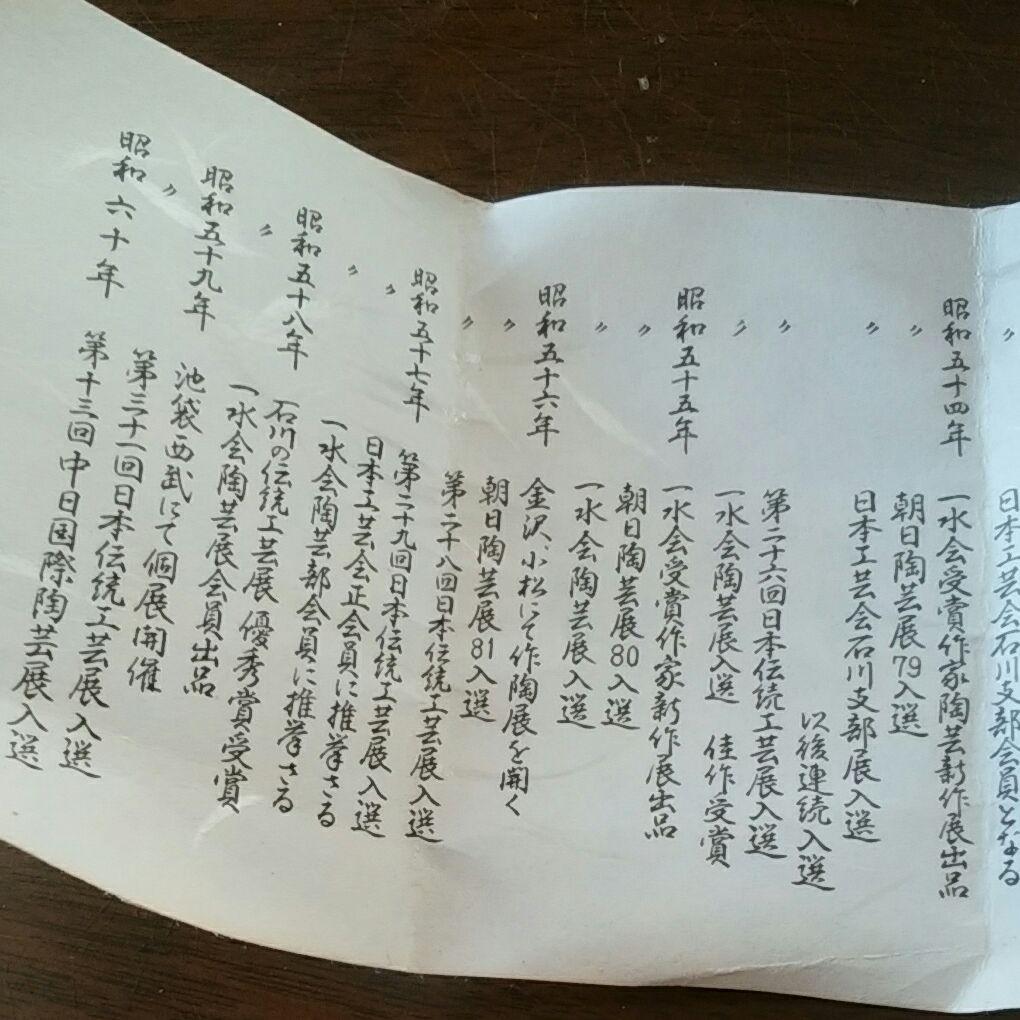 〃 日本工芸会石川支部会員となる
昭和五十四年 一水会受賞作家陶芸新作展出品
〃 朝日陶芸展79入選
〃 日本工芸会石川支部展入選
以後連続入選
〃 第二十六回日本伝統工芸展入選
〃 一水会陶芸展入選 佳作受賞
昭和五十五年 一水会受賞作家新作展出品
〃 朝日陶芸展80入選
〃 一水会陶芸展入選
昭和五十六年 金沢、小松にて作陶展を開く
〃 朝日陶芸展81入選
〃 第二十八回日本伝統工芸展入選
昭和五十七年 第二十九回日本伝統工芸展入選
〃 日本工芸会正会員に推挙さる
〃 一水会陶芸部会員に推挙さる
昭和五十八年 石川の伝統工芸展 優秀賞受賞
〃 一水会陶芸展会員出品
昭和五十九年 池袋西武にて個展開催
〃 第三十一回日本伝統工芸展入選
昭和六十年 第十三回中日国際陶芸展入選